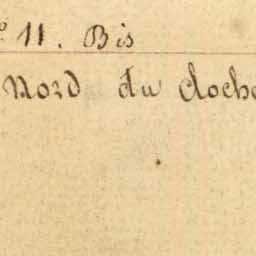 º 11. Bis
Nord du Cloche